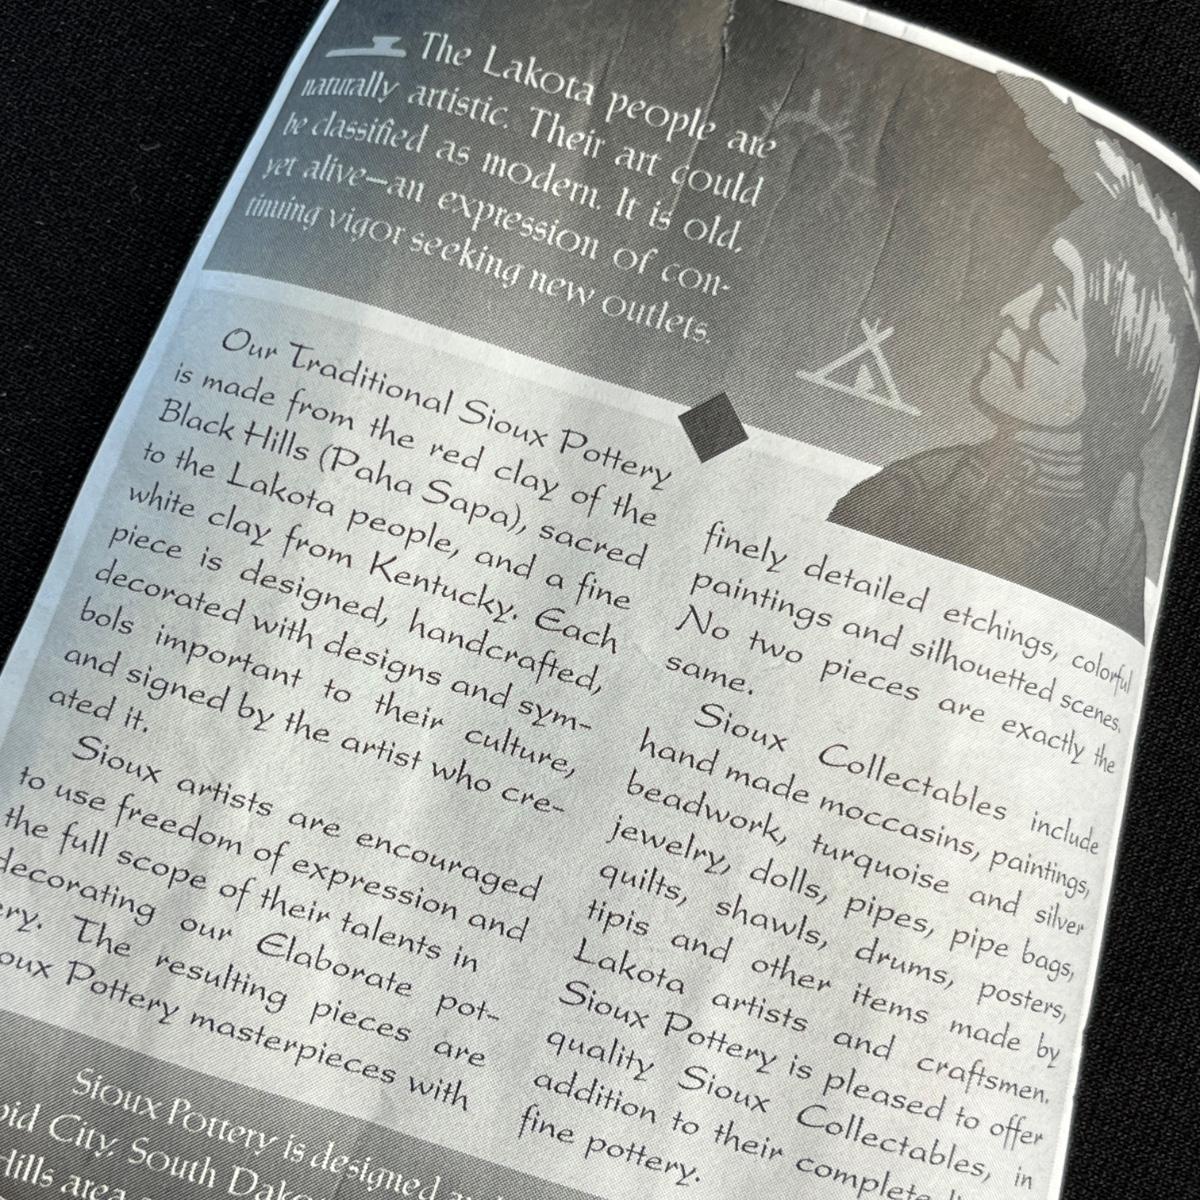 The Lakota people are
naturally artistic. Their art could
be classified as modern. It is old,
yet alive—an expression of con-
tinuing vigor seeking new outlets.
Our Traditional Sioux Pottery
is made from the red clay of the
Black Hills (Paha Sapa), sacred
to the Lakota people, and a fine
white clay from Kentucky. Each
piece is designed, handcrafted,
decorated with designs and sym-
bols important to their culture,
and signed by the artist who cre-
ated it.
Sioux artists are encouraged
to use freedom of expression and
the full scope of their talents in
decorating our Elaborate pot-
ery. The resulting pieces are
oux Pottery masterpieces with
finely detailed etchings, colorful
paintings and silhouetted scenes.
No two pieces are exactly the
same.
Sioux Collectables include
hand made moccasins, paintings,
beadwork, turquoise and silver
jewelry, dolls, pipes, pipe bags,
quilts, shawls, drums, posters,
tipis and other items made by
Lakota artists and craftsmen.
Sioux Pottery is pleased to offer
quality Sioux Collectables, in
addition to their complete
fine pottery.
Sioux Pottery is designed
pid City, South Dako
Hills area